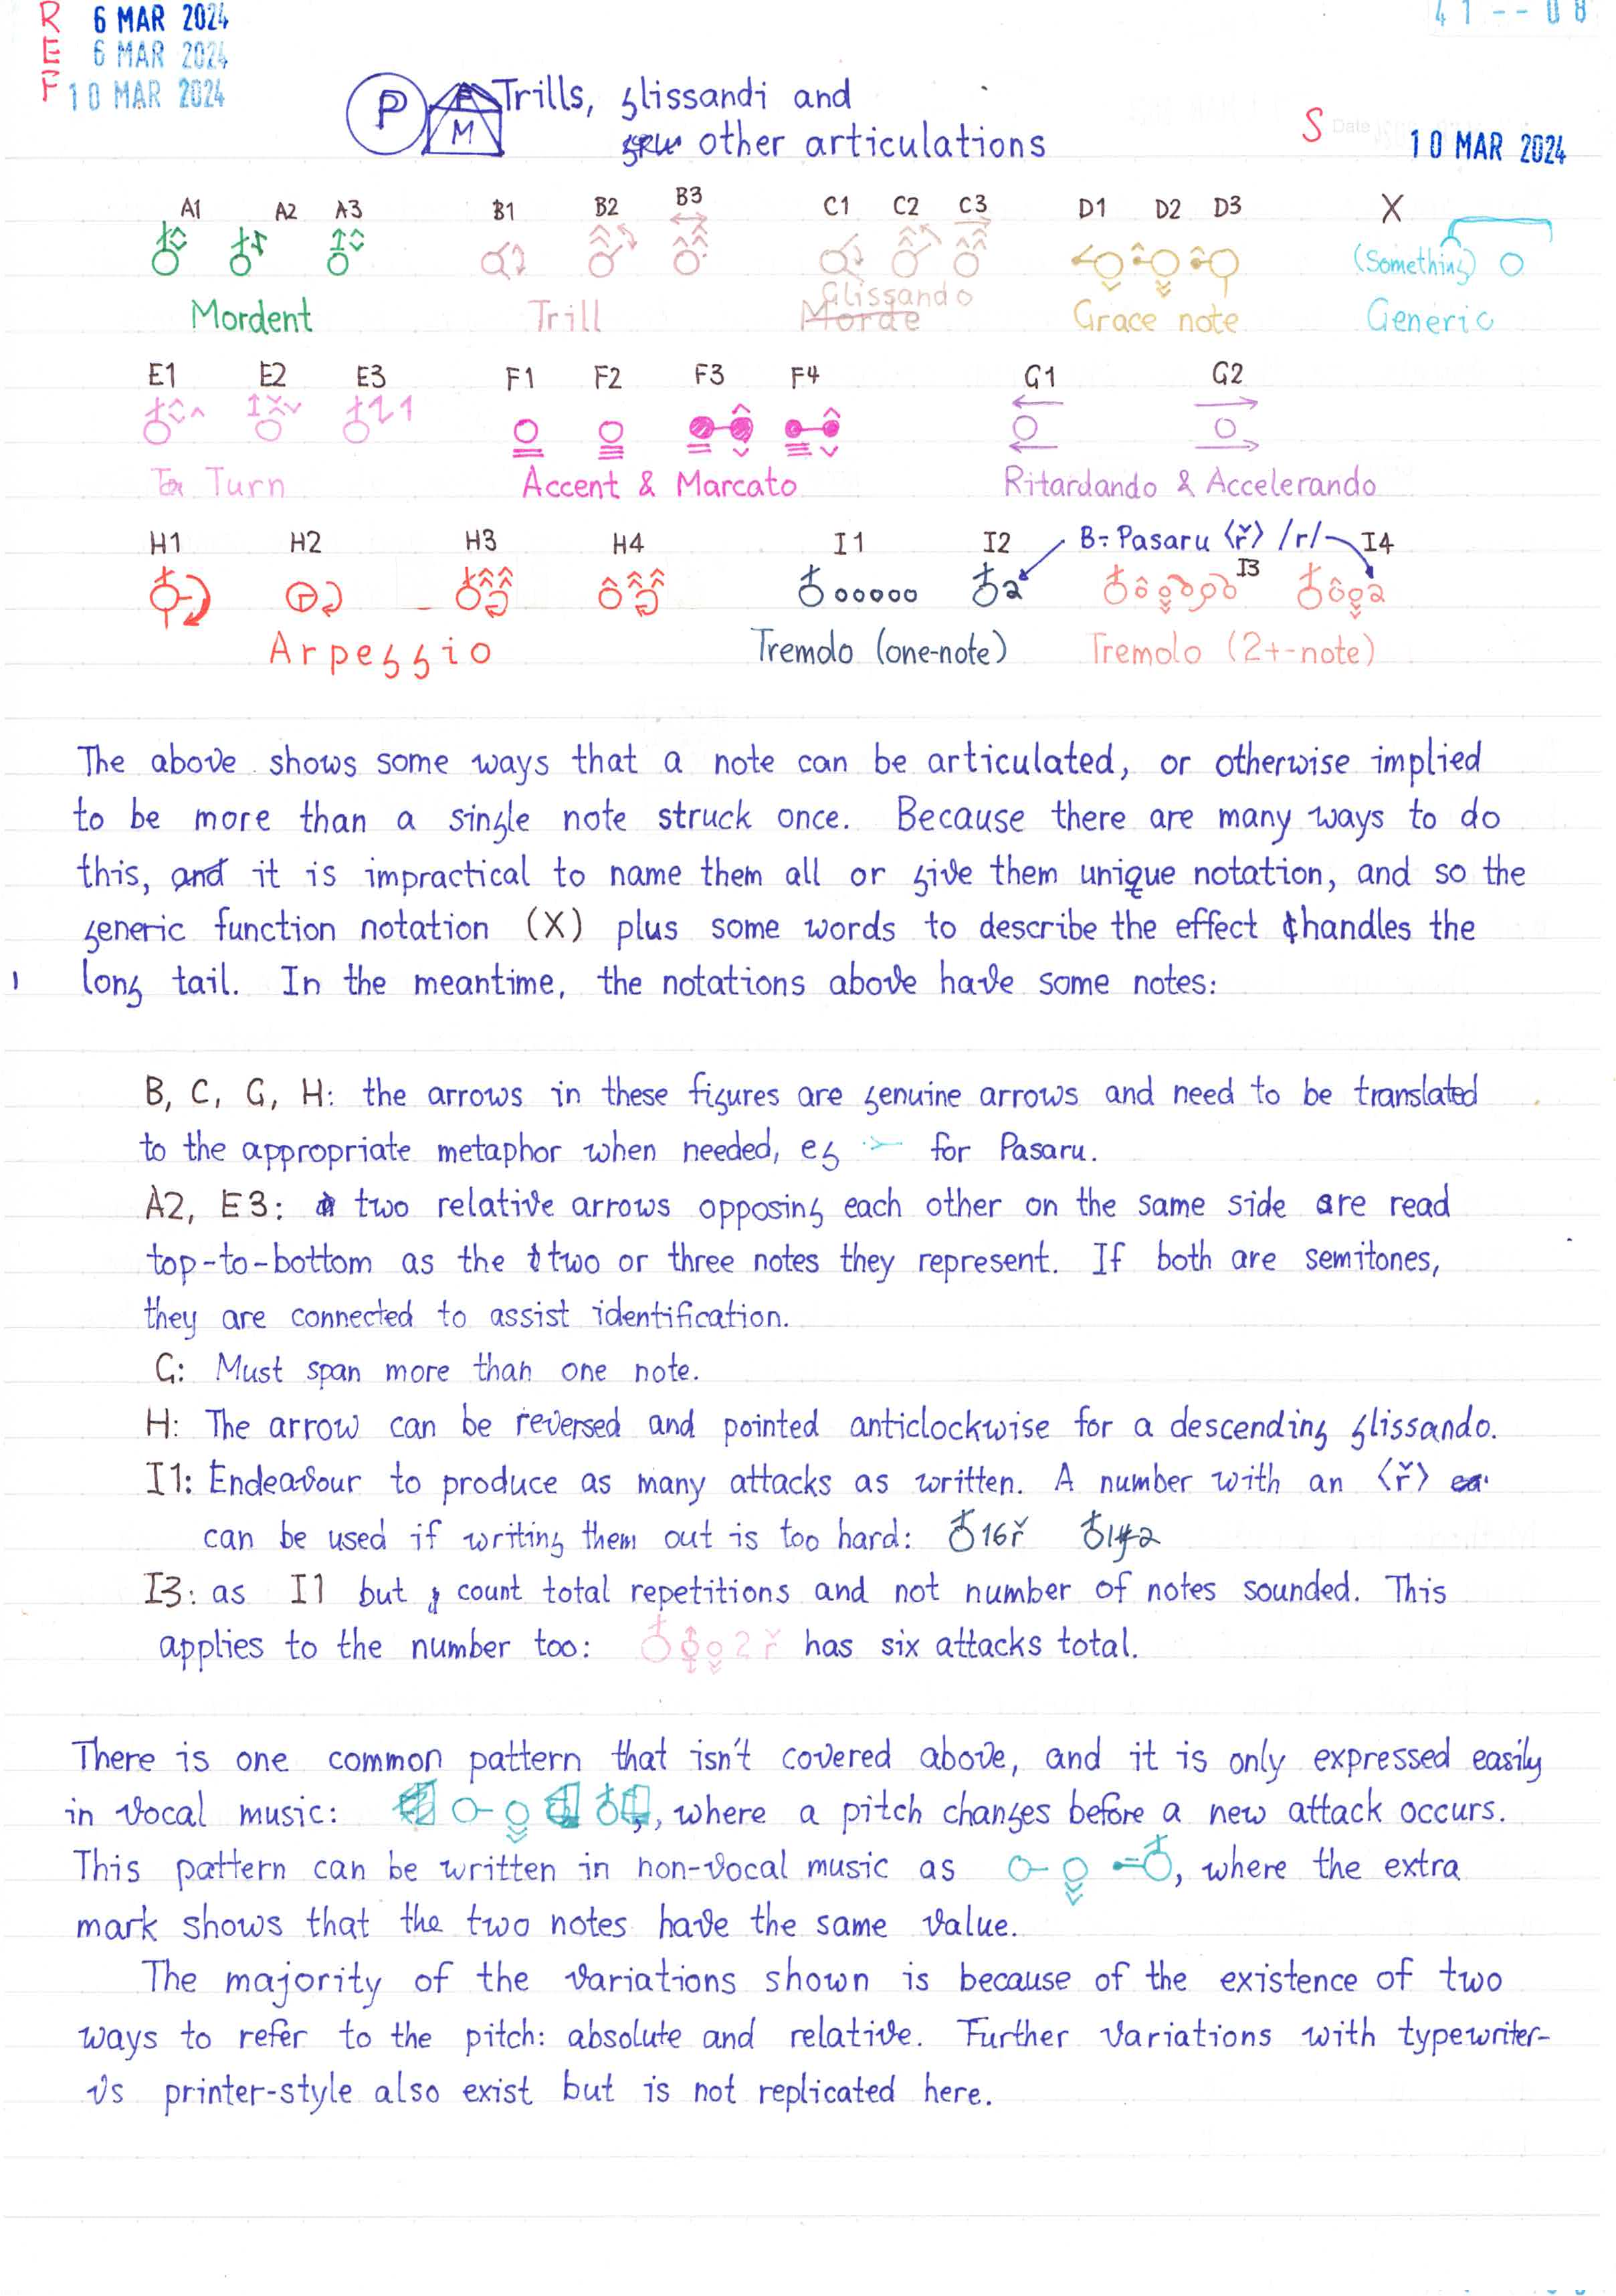 R 6 MAR 2024
E 6 MAR 2024
F 10 MAR 2024
41--08
P M Trills, glissandi and
other articulations
S Date 10 MAR 2024
A1 A2 A3 B1 B2 B3 C1 C2 C3 D1 D2 D3 X
(Something)
Mordent Trill Morde Glissando Grace note Generic
E1 E2 E3 F1 F2 F3 F4 G1 G2
Turn Accent & Marcato Ritardando & Accelerando
H1 H2 H3 H4 I1 I2 B: Pasaru ⟨ř⟩ /r/ I3 I4
Arpeggio Tremolo (one-note) Tremolo (2+-note)
The above shows some ways that a note can be articulated, or otherwise implied
to be more than a single note struck once. Because there are many ways to do
this, and it is impractical to name them all or give them unique notation, and so the
generic function notation (X) plus some words to describe the effect handles the
long tail. In the meantime, the notations above have some notes:
B, C, G, H: the arrows in these figures are genuine arrows and need to be translated
to the appropriate metaphor when needed, eg >- for Pasaru.
A2, E3: two relative arrows opposing each other on the same side are read
top-to-bottom as the two or three notes they represent. If both are semitones,
they are connected to assist identification.
G: Must span more than one note.
H: The arrow can be reversed and pointed anticlockwise for a descending glissando.
I1: Endeavour to produce as many attacks as written. A number with an ⟨ř⟩
can be used if writing them out is too hard: 16ř
I3: as I1 but count total repetitions and not number of notes sounded. This
applies to the number too: 2ř has six attacks total.
There is one common pattern that isn't covered above, and it is only expressed easily
in vocal music: , where a pitch changes before a new attack occurs.
This pattern can be written in non-vocal music as , where the extra
mark shows that the two notes have the same value.
The majority of the variations shown is because of the existence of two
ways to refer to the pitch: absolute and relative. Further variations with typewriter-
vs printer-style also exist but is not replicated here.